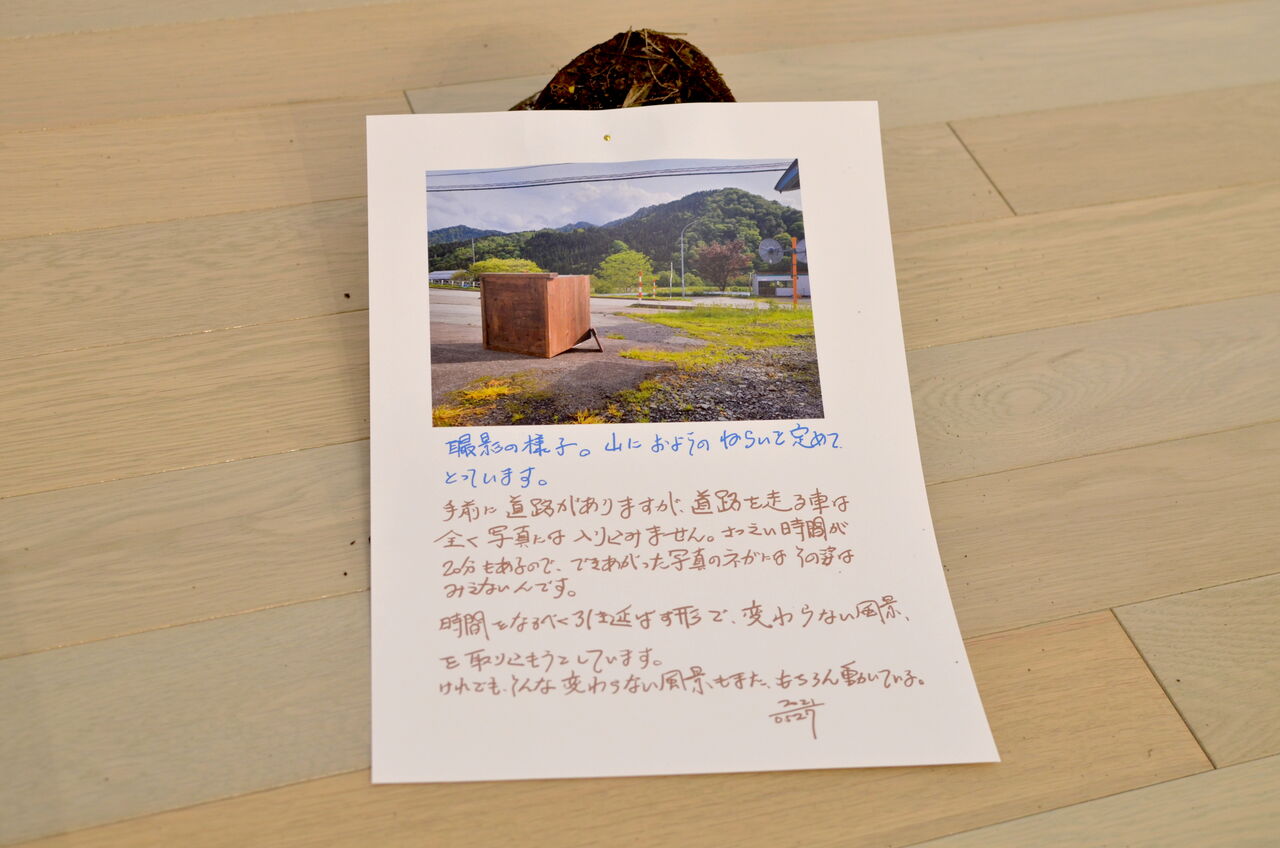 撮影の様子。山におおようのねらいを定めて
とっています。
手前に道路がありますが、道路を走る車は
全く写真には入り込みません。さつえい時間が
20分もあるので、できあがった写真のネガにはその姿は
みえないんです。
時間をなるべく引き延ばす形で、変わらない風景、
を取り込もうとしています。
けれでも、そんな変わらない風景もまた、もちろん動いている。
2021
0527